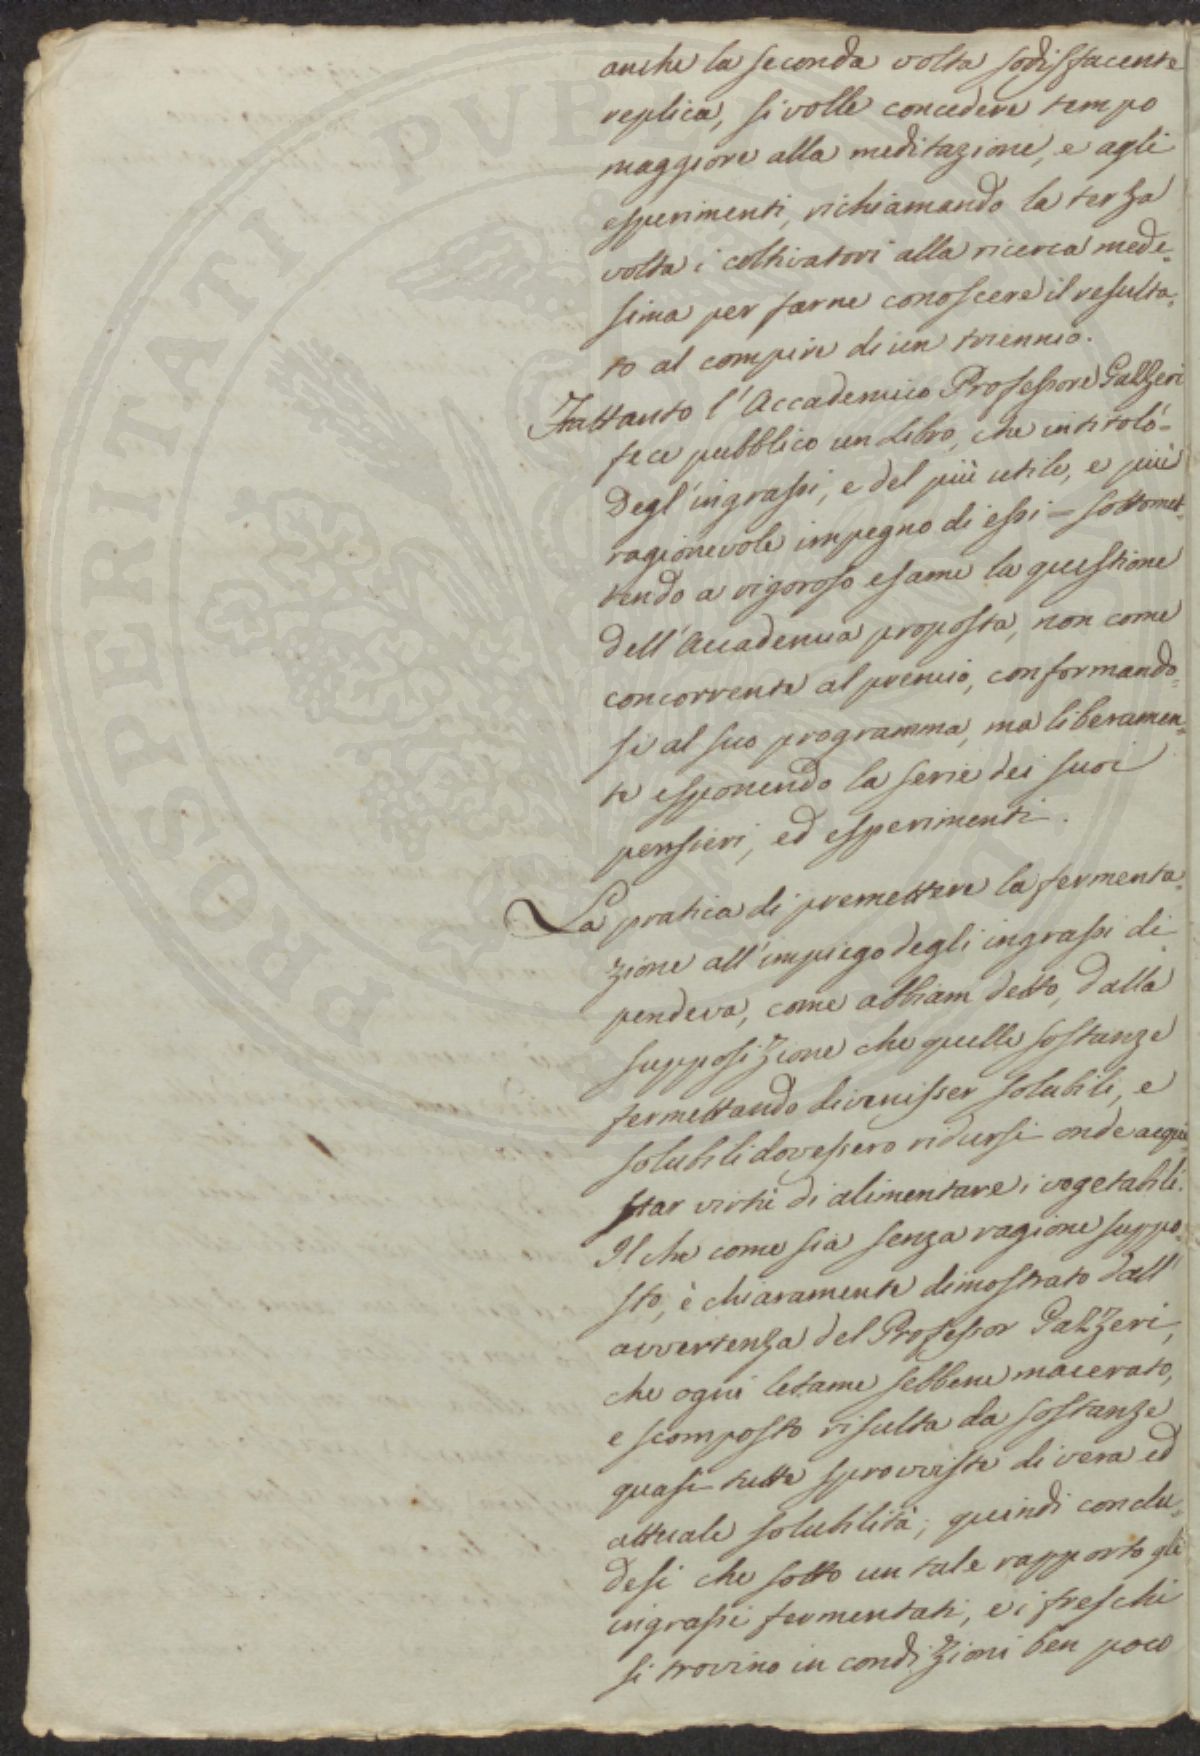 anche la seconda volta sodisfacente
replica, si volle concedere tempo
maggiore alla meditazione, e agli
esperimenti, richiamando la terza
volta i coltivatori alla ricerca mede-
sima per farne conoscere il resulta-
to al compire di un triennio.
Frattanto l'Accademico Professore Gazzeri
fece pubblico un Libro, che intitolò=
Degl'ingrassi, e del più utile, e più
ragionevole impegno di essi = sottomet-
tendo a rigoroso esame la questione
dell'Accademia proposta, non come
concorrente al premio, conformando-
si al suo programma, ma liberamen-
te esponendo la serie dei suoi
pensieri, ed esperimenti.
La pratica di premettere la fermenta-
zione all'impiego degli ingrassi di-
pendeva, come abbiam detto, dalla
supposizione che quelle sostanze
fermentando divenisser solubili, e
solubili dovessero ridursi onde acqui-
star virtù di alimentare i vegetabili.
Il che come sia senza ragione suppo-
sto, è chiaramente dimostrato dall'
avvertenza del Professor Gazzeri,
che ogni letame sebbene macerato,
e scomposto risulta da sostanze
quasi tutte sprovviste di vera ed
attuale solubilità; quindi conclu-
desi che sotto un tale rapporto gli
ingrassi fermentati, e i freschi
si trovino in condizioni ben poco
PROSPERITATI PVBLICAE